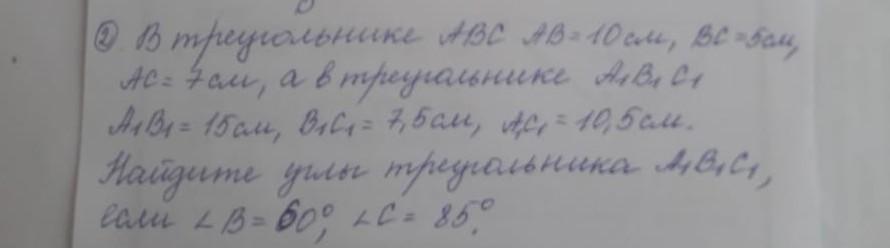 ② В треугольнике ABC AB = 10 см, BC = 5см,
AC = 7 см, а в треугольнике A₁B₁C₁
A₁B₁ = 15 см, B₁C₁ = 7,5 см, A₁C₁ = 10,5 см.
Найдите углы треугольника A₁B₁C₁,
если ∠B = 60°, ∠C = 85°.